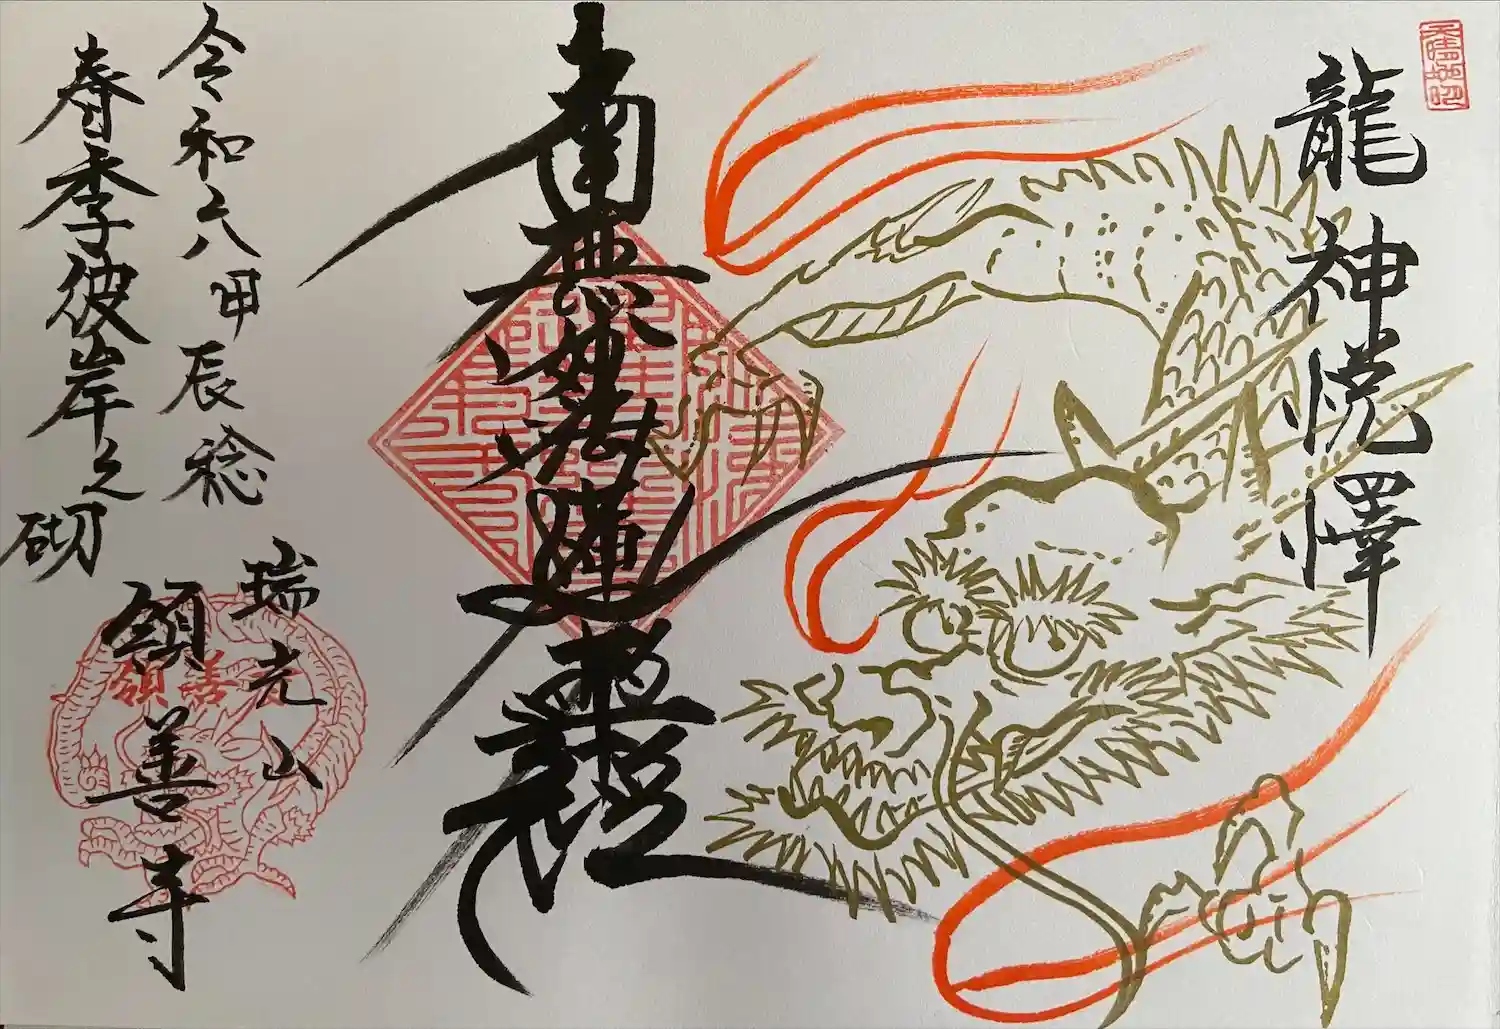 龍神悦懌
南無妙法蓮華経
令和六甲辰稔
春季彼岸之砌
瑞光山
領善寺
領善